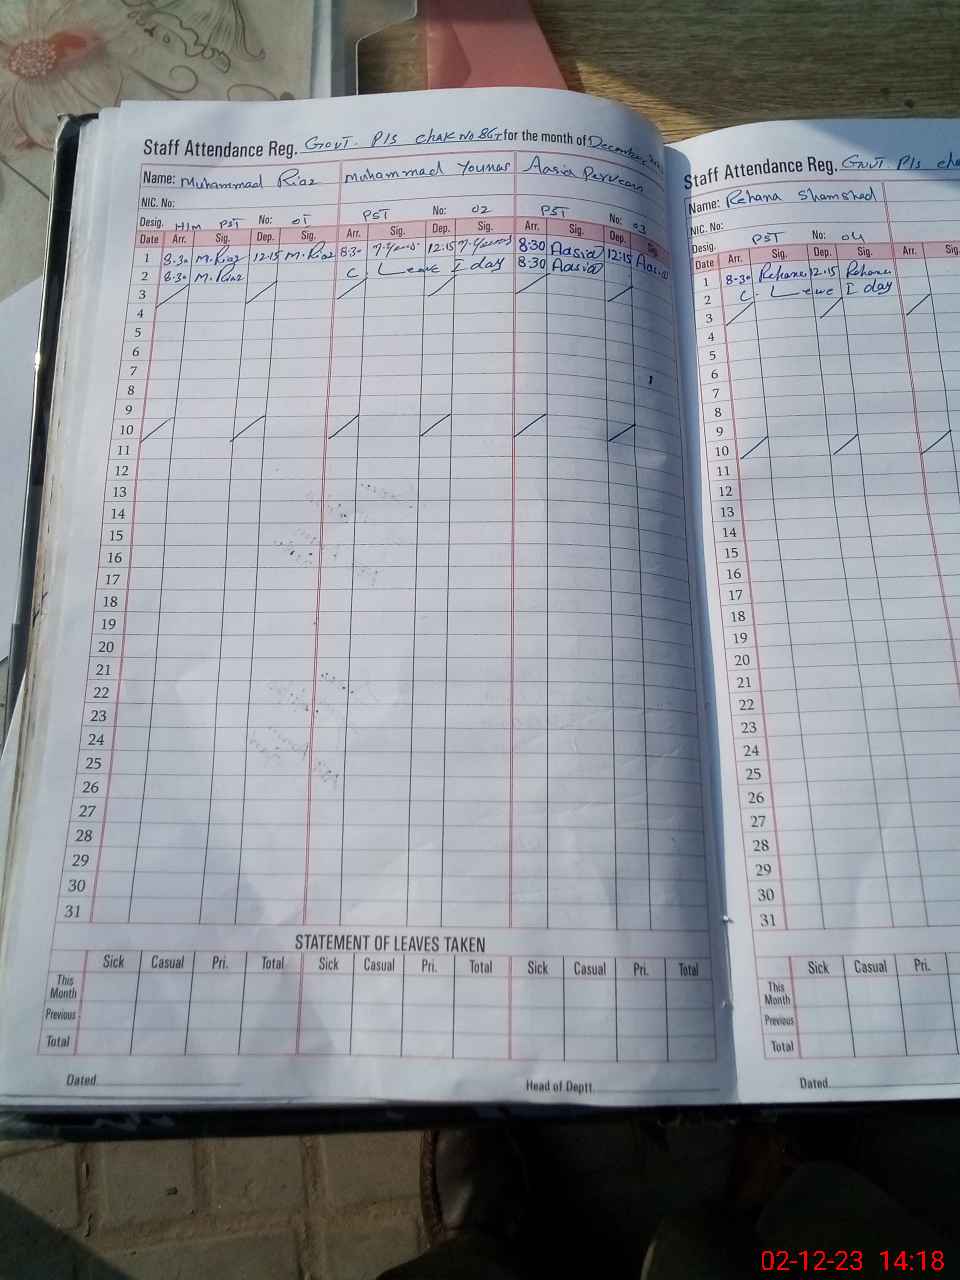 Staff Attendance Reg. Govt. P/S Chak No 86T for the month of December
Name: Muhammad Riaz Muhammad Younas Aasia Perveen
NIC. No:
Desig. H/m PST No: 01 PST No: 02 PST No: 03
Date Arr. Sig. Dep. Sig. Arr. Sig. Dep. Sig. Arr. Sig. Dep. Sig.
1 8.30 M.Riaz 12:15 M.Riaz 8:30 12:15 8:30 Aasia 12:15 Aasia
2 8.30 M.Riaz C. Leave I day 8:30 Aasia
3
4
5
6
7
8
9
10
11
12
13
14
15
16
17
18
19
20
21
22
23
24
25
26
27
28
29
30
31
STATEMENT OF LEAVES TAKEN
Sick Casual Pri. Total Sick Casual Pri. Total Sick Casual Pri. Total
This Month
Previous
Total
Dated Head of Deptt.
Staff Attendance Reg. Govt P/S
Name: Rehana Shamshad
NIC. No:
Desig. PST No: 04
Date Arr. Sig. Dep. Sig. Arr.
1 8-30 Rehana 12:15 Rehana
2 C. Leave I day
3
4
5
6
7
8
9
10
11
12
13
14
15
16
17
18
19
20
21
22
23
24
25
26
27
28
29
30
31
Sick Casual Pri.
This Month
Previous
Total
Dated
02-12-23 14:18